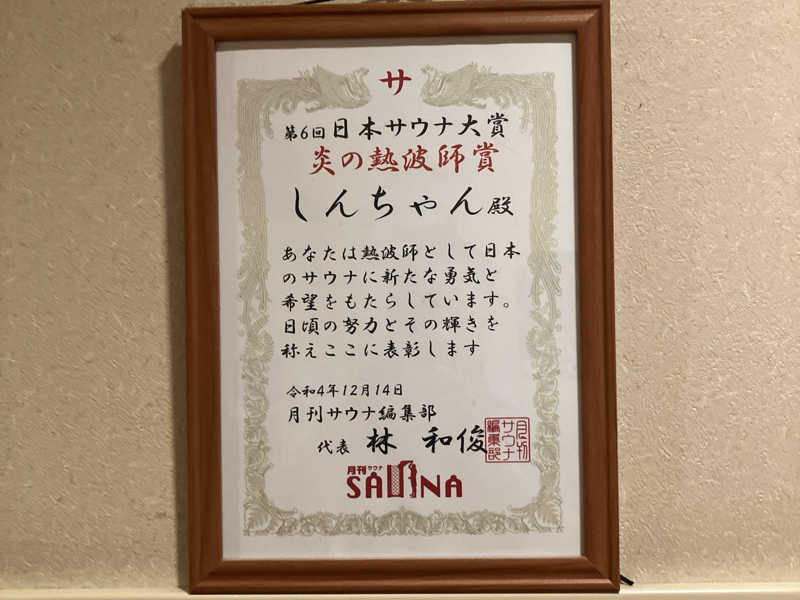 サ
第6回日本サウナ大賞
炎の熱波師賞
しんちゃん殿
あなたは熱波師として日本
のサウナに新たな勇気と
希望をもたらしています。
日頃の努力とその輝きを
称えここに表彰します
令和4年12月14日
月刊サウナ編集部
代表 林 和俊
月刊サウナ編集部
月刊サウナ
SAUNA